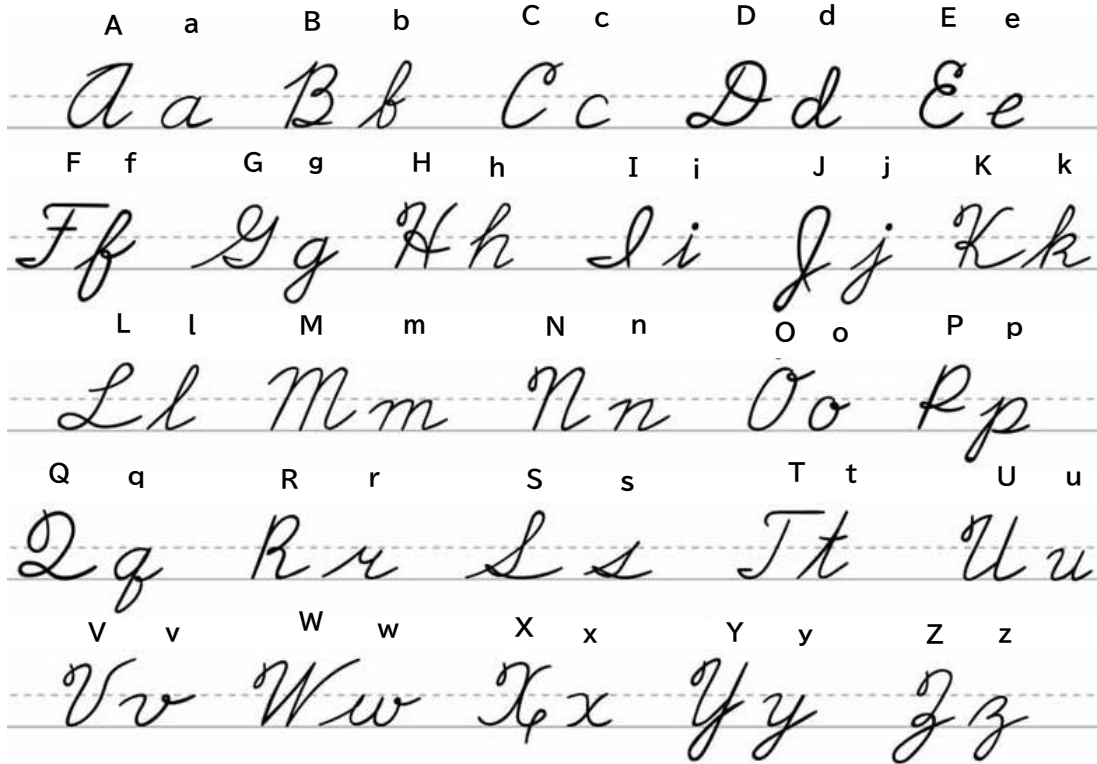 A a B b C c D d E e
A a B b C c D d E e
F f G g H h I i J j K k
F f G g H h I i J j K k
L l M m N n O o P p
L l M m N n O o P p
Q q R r S s T t U u
Q q R r S s T t U u
V v W w X x Y y Z z
V v W w X x Y y Z z